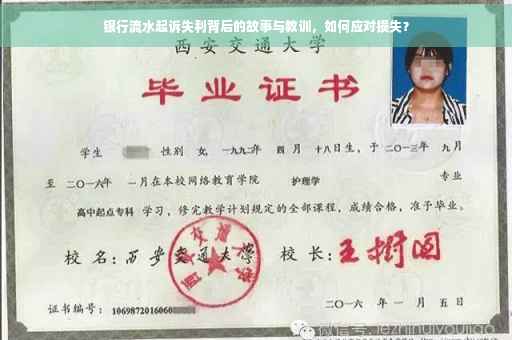 银行流水起诉失利背后的故事与教训，如何应对损失？
西安交通大学
毕业证书
学生 性别 女，一九九二年 四月 十八日生，于二〇一三年 九月
至 二〇一六年 一月在本校网络教育学院 护理学 专业
高中起点专科 学习，修完教学计划规定的全部课程，成绩合格，准予毕业。
校名：西安交通大学 校长：王树国
西安交通大学
证书编号：1069872016060
二〇一六年 一月 五日
微信号: lezhihuiyoujiao